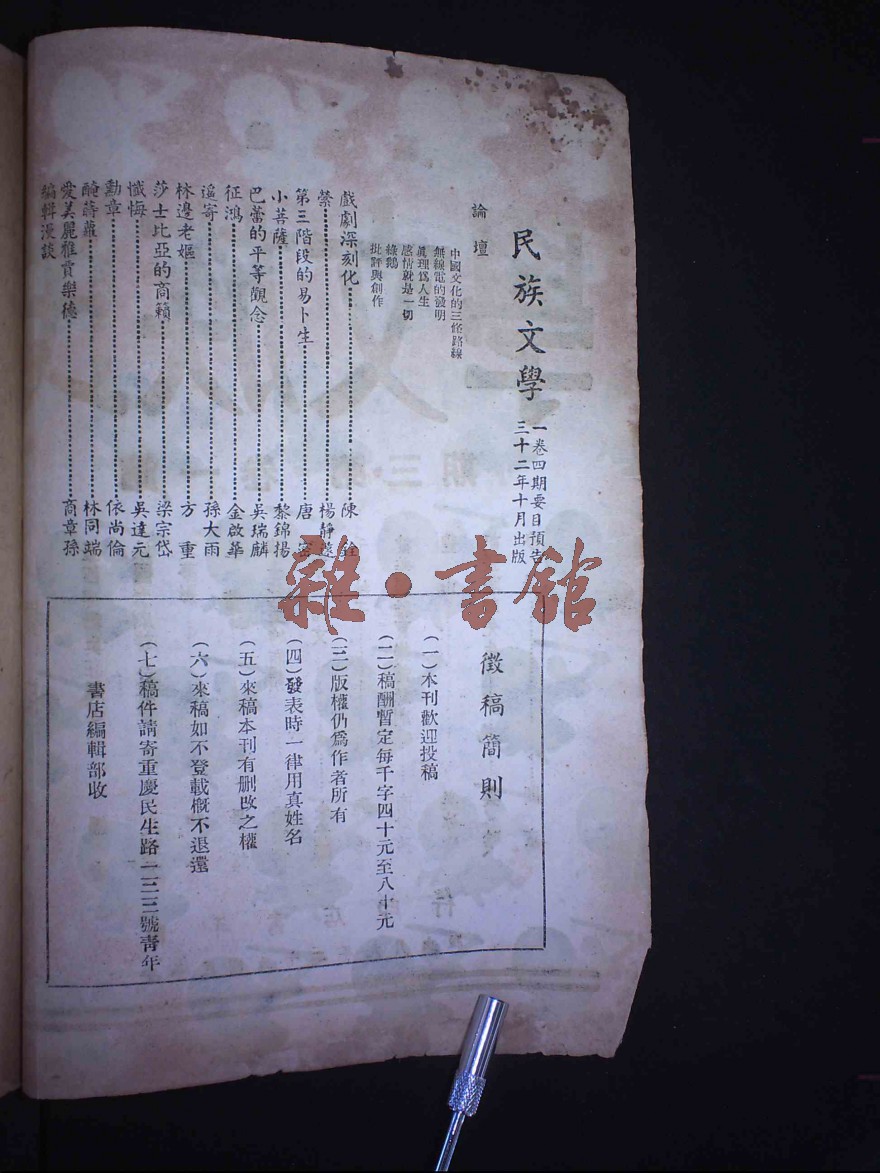 民族文學
一卷四期要目預告
三十二年十月出版
論壇
中國文化的三條路線
無線電的發明
眞理爲人生
感情就是一切
綠鵝
批評與創作
戲劇深刻化 陳銓
縈 楊静遠
第三階段的易卜生 唐密
小菩薩 黎錦揚
巴蕾的平等觀念 吳瑞麟
征鴻 金啟華
遥寄 孫大雨
林邊老嫗 方重
莎士比亞的商籟 梁宗岱
懺悔 吳達元
勳章 依尚倫
醃蒔蘿 林同端
愛美麗雅貢樂德 商章孫
編輯漫談
徵稿簡則
(一)本刊歡迎投稿
(二)稿酬暫定每千字四十元至八十元
(三)版權仍爲作者所有
(四)發表時一律用真姓名
(五)來稿本刊有删改之權
(六)來稿如不登載概不退還
(七)稿件請寄重慶民生路一二三號青年
書店編輯部收
雜·書館